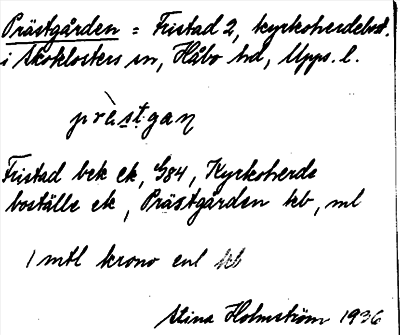 Prästgården = Fristad 2, kyrkoherdebost.
i Skoklosters sn, Håbo hd, Upps. l.
prèstgan
Fristad bek ek, G84, Kyrkoherde
boställe ek, Prästgården kb, ml
1 mtl krono enl kb
Stina Holmström 1936